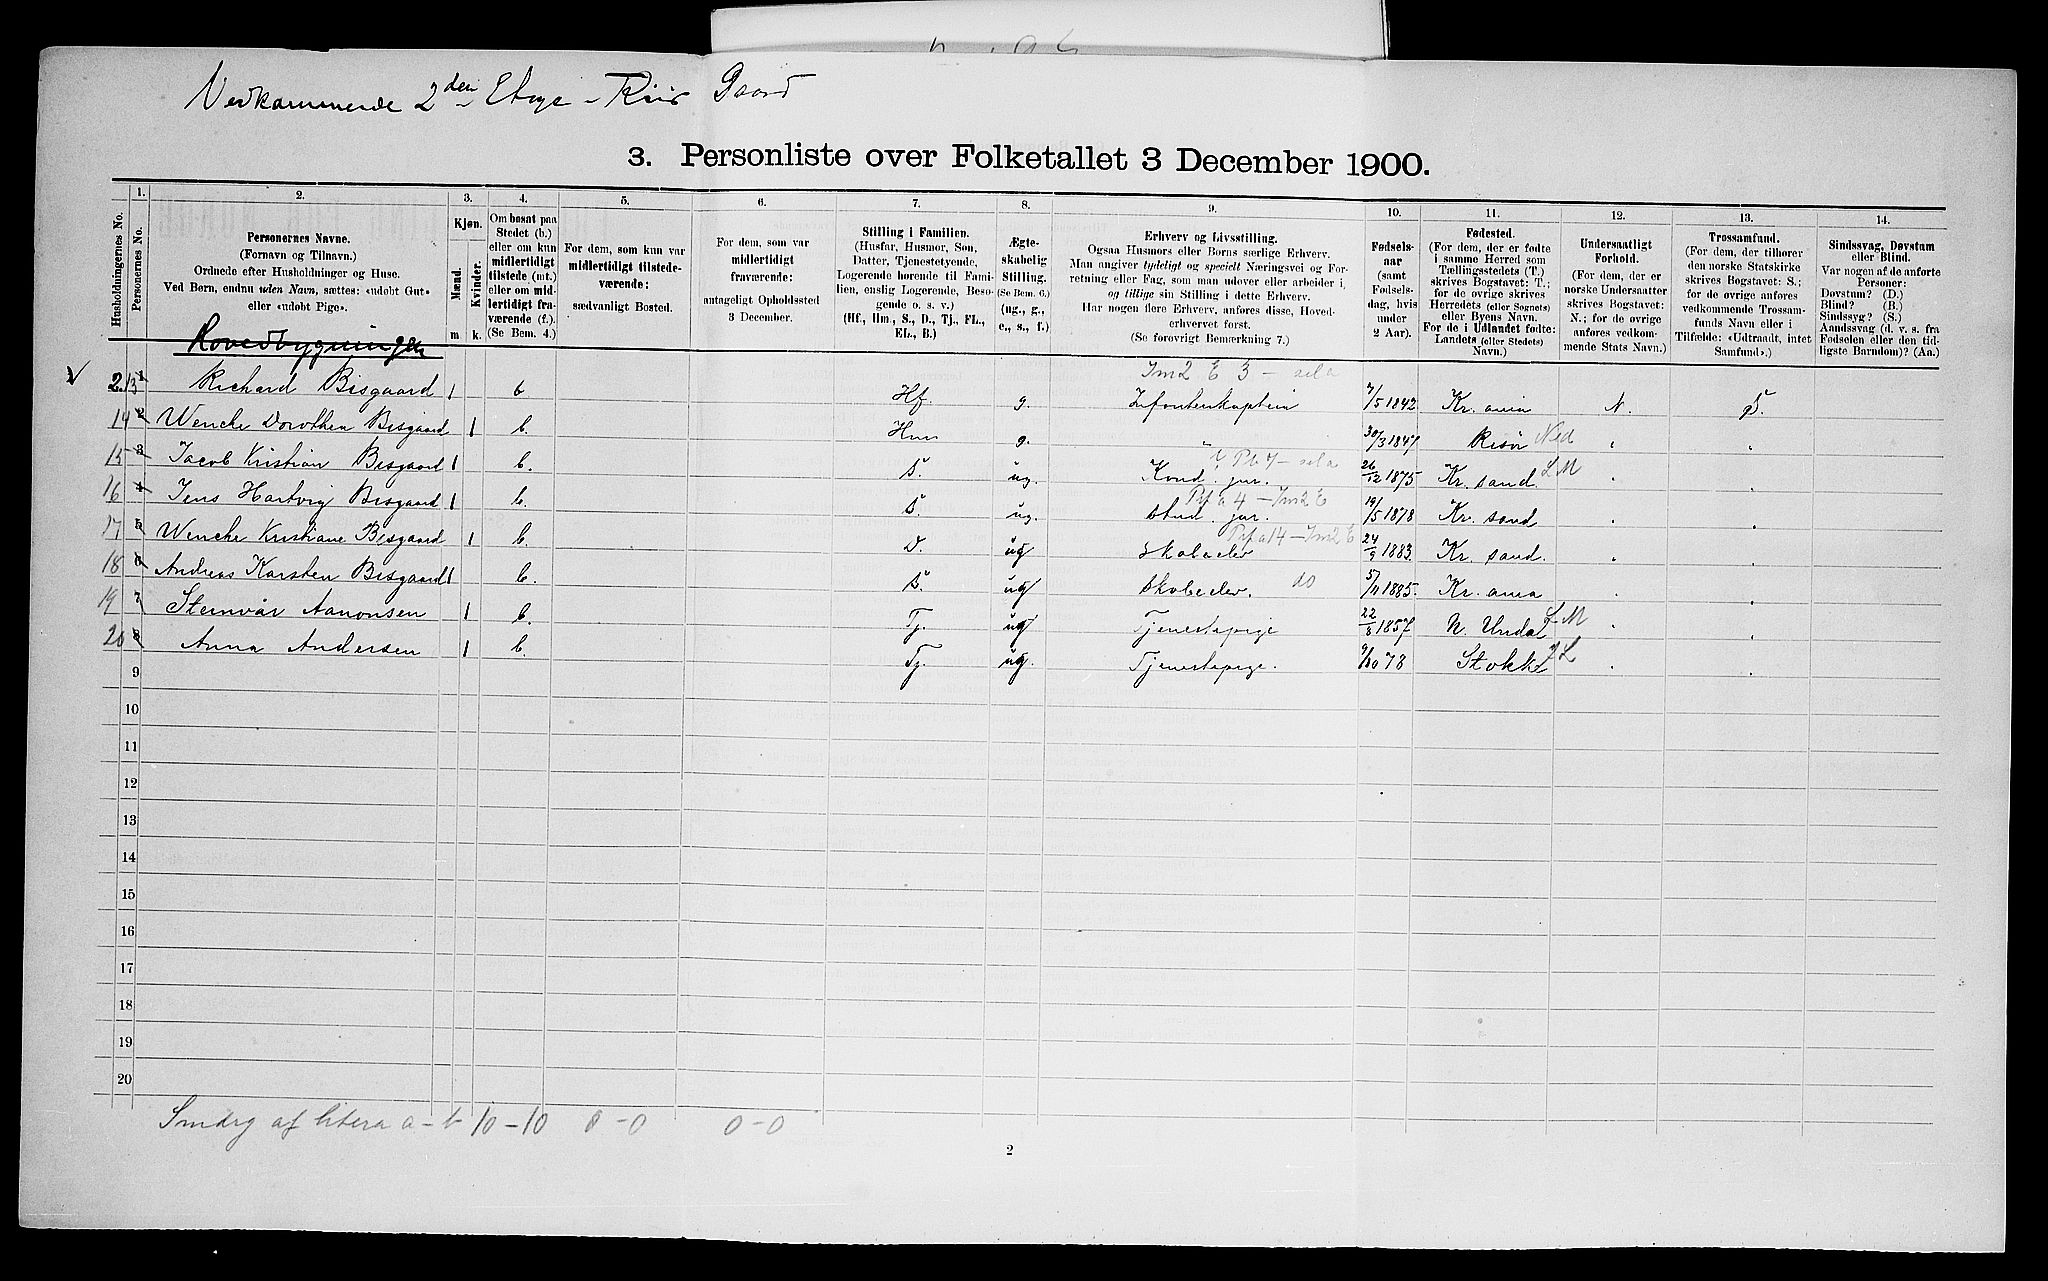 Vedkommende 2den Etage - Riis Gaard
3. Personliste over Folketallet 3 December 1900.
Husholdningernes No.
1.
Personernes No.
2.
Personernes Navne.
(Fornavn og Tilnavn.)
Ordnede efter Husholdninger og Huse.
Ved Børn, endnu uden Navn, sættes: «udøbt Gut»
eller «udøbt Pige».
3.
Kjøn.
Mænd.
Kvinder.
m k.
4.
Om bosat paa
Stedet (b.)
eller om kun
midlertidigt
tilstede (mt.)
eller om mid-
lertidigt fra-
værende (f.).
(Se Bem. 4.)
5.
For dem, som kun var
midlertidigt tilstede-
værende:
sædvanligt Bosted.
6.
For dem, som var
midlertidigt
fraværende:
antageligt Opholdssted
3 December.
7.
Stilling i Familien.
(Husfar, Husmor, Søn,
Datter, Tjenestetyende,
Logerende hørende til Fami-
lien, enslig Logerende, Besø-
gende o. s. v.)
(Hf., Hm., S., D., Tj., FL.,
EL., B.)
8.
Ægte-
skabelig
Stilling.
(Se Bem. 6.)
(ug., g.,
e., s., f.)
9.
Erhverv og Livsstilling.
Ogsaa Husmors eller Børns særlige Erhverv.
Man angiver tydeligt og specielt Næringsvei og For-
retning eller Fag, som man udøver eller arbeider i,
og tillige sin Stilling i dette Erhverv.
Har nogen flere Erhverv, anføres disse, Hoved-
erhvervet først.
(Se forøvrigt Bemærkning 7.)
10.
Fødsels-
aar
(samt
Fødsels-
dag, hvis
under
2 Aar).
11.
Fødested.
(For dem, der er fødte
i samme Herred som
Tællingsstedets (T.)
skrives Bogstavet: T.;
for de øvrige skrives
Herredets (eller Sognets)
eller Byens Navn.
For de i Udlandet fødte:
Landets (eller Stedets)
Navn.)
12.
Undersaatligt
Forhold.
(For dem, der er
norske Undersaatter
skrives Bogstavet:
N.; for de øvrige
anføres vedkom-
mende Stats Navn.)
13.
Trossamfund.
(For dem, der tilhører
den norske Statskirke
skrives Bogstavet: S.;
for de øvrige anføres
vedkommende Trossam-
funds Navn eller i
Tilfælde: «Udtraadt, intet
Samfund».)
14.
Sindssvag, Døvstum
eller Blind.
Var nogen af de anførte
Personer:
Døvstum? (D.)
Blind? (B.)
Sindssyg? (S.)
Aandssvag (d. v. s. fra
Fødselen eller den tid-
ligste Barndom)? (Aa.)
Hovedbygningen
Im2 E 3 -
2. 13 1 Richard Bisgaard 1 b Hf. g. Infanterikaptein 7/5 1842 Kr. ania N. S.
14 2 Wenche Dorothea Bisgaard 1 b. Hm g. " 30/3 1847 Risør Ned " "
15 3 Jacob Kristian Bisgaard 1 b. S. ug. Kand. jur. 26/12 1875 Kr. sand. LM " "
Prf a 4 - Im2 E
16 4 Jens Hartvig Bisgaard 1 b. S. ug. stud. jur. 19/5 1878 Kr. sand " "
Prf a 14 - Im2 E
17 5 Wenche Kristiane Bisgaard 1 b. D. ug Skoleelev 24/9 1883. Kr. sand. " "
18 6 Andreas Karsten Bisgaard 1 b. S. ug Skoleelev. do 5/11 1885. Kr. ania " "
19 7 Stenvår Aanonsen 1 b. Tj. ug Tjenestepige 22/8 1857 N. Undal LM " "
20 8 Anna Andersen 1 b. Tj. ug. Tjenestepige. 9/10 78 Stokke JL " "
9
10
11
12
13
14
15
16
17
18
19
20
Smdrg af litera a - b 10 - 10 0 - 0 0 - 0
2